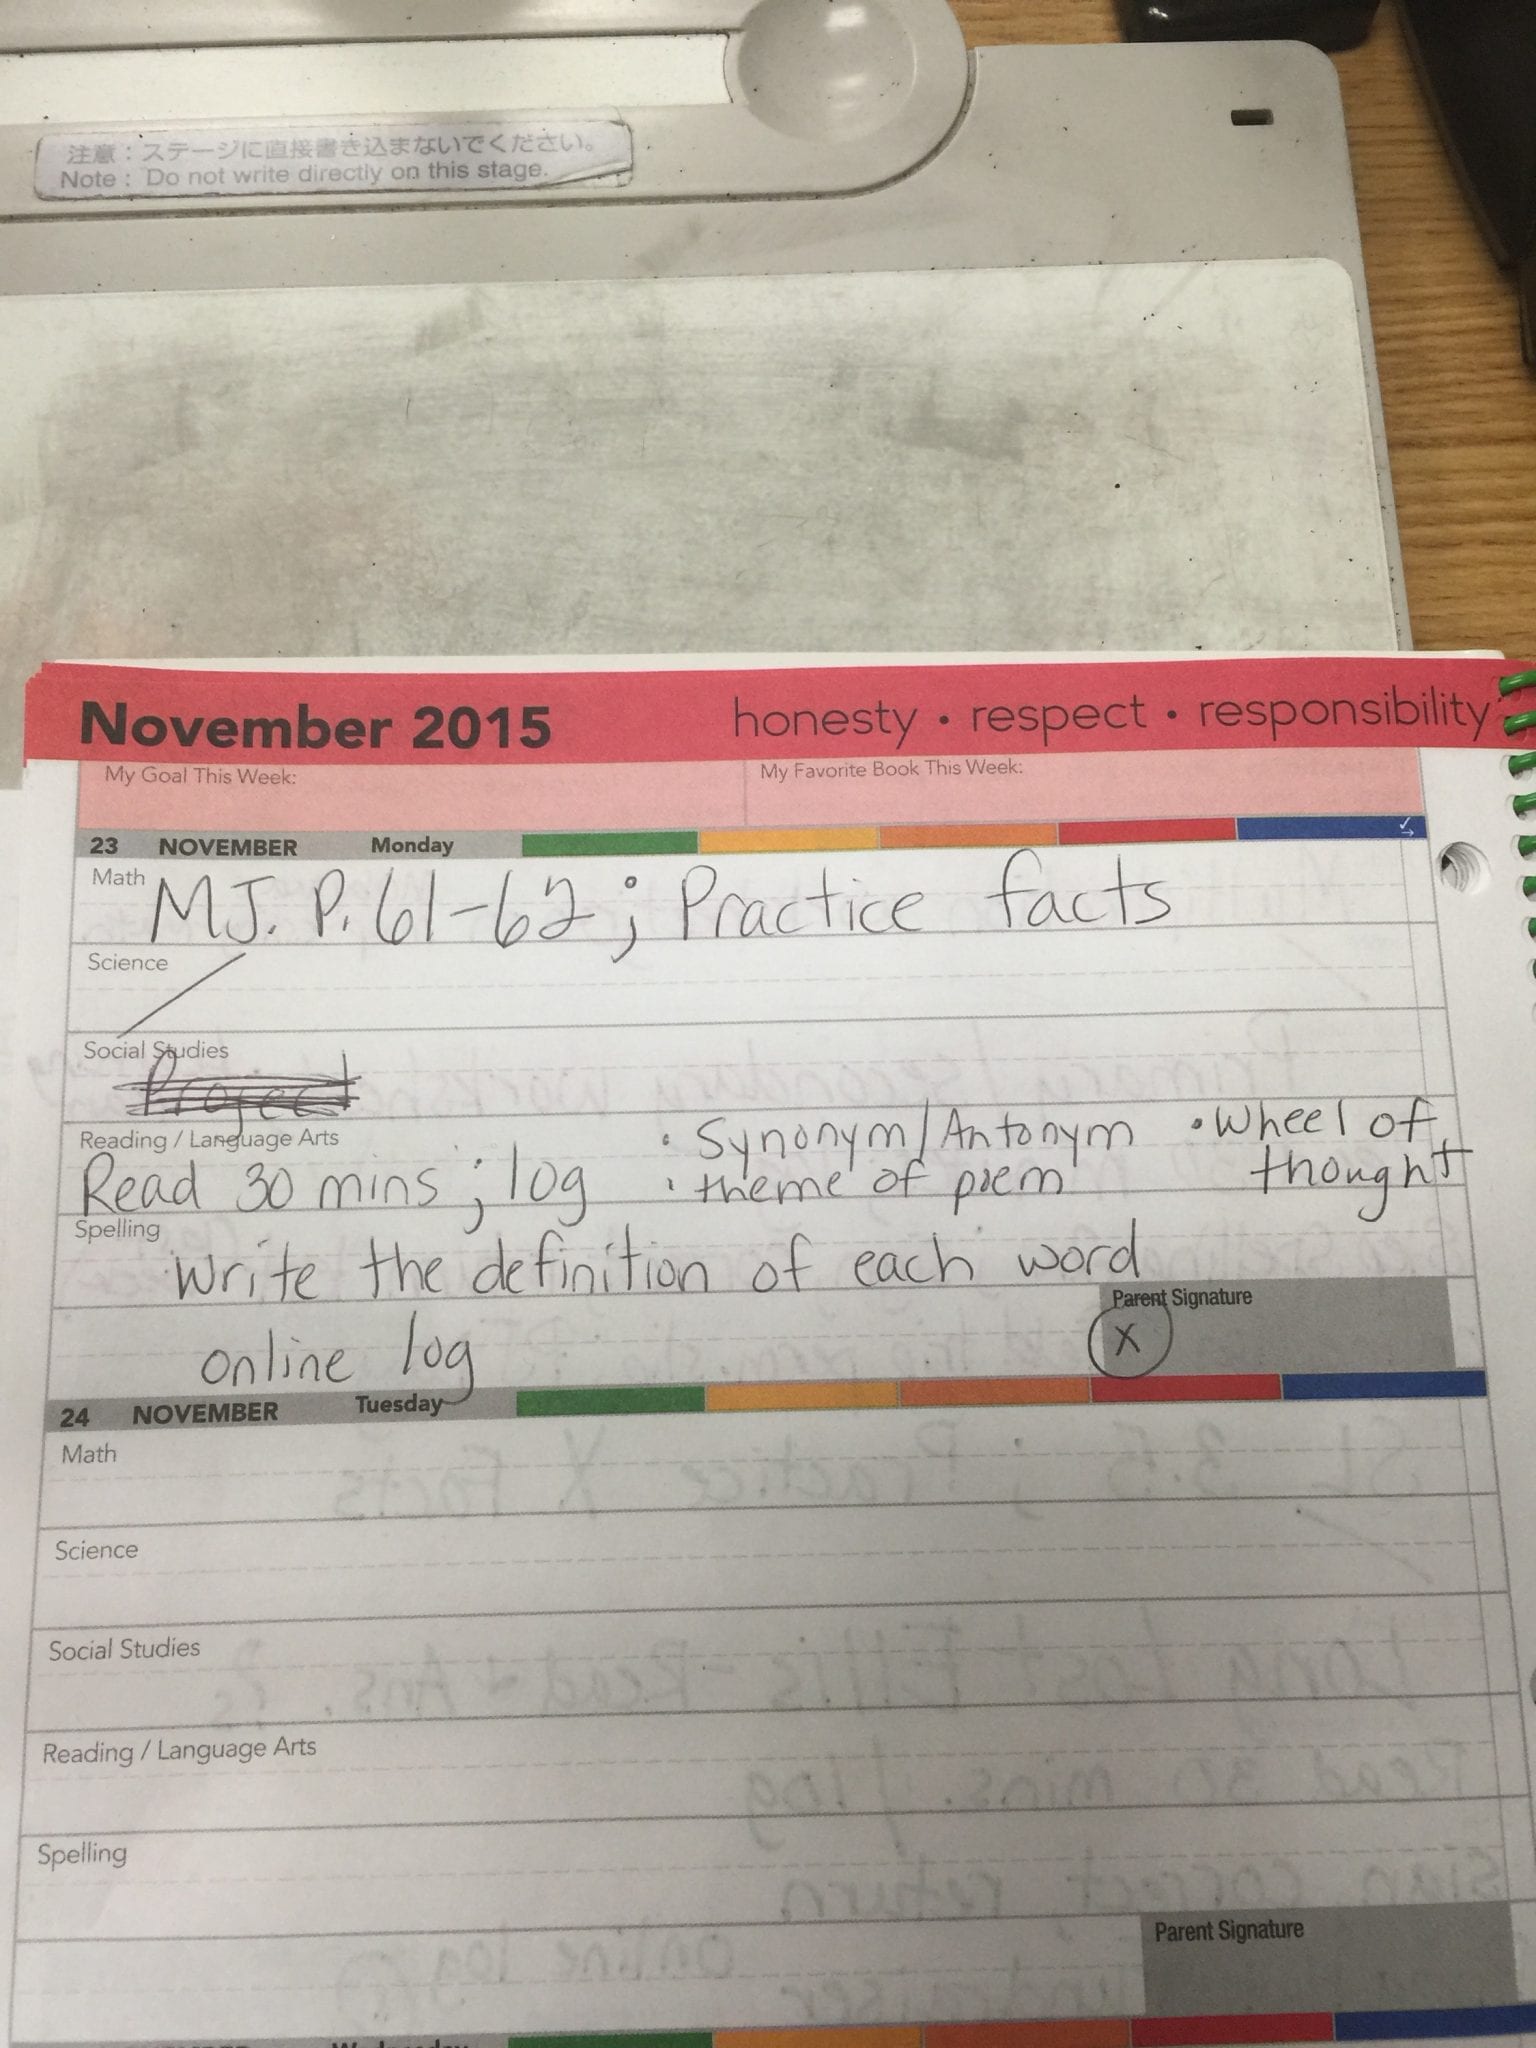 注意：ステージに直接書き込まないでください。
Note : Do not write directly on this stage.
November 2015
honesty • respect • responsibility
My Goal This Week:
My Favorite Book This Week:
23 NOVEMBER Monday
Math
MJ. P. 61-62 ; Practice facts
Science
Social Studies
Project
Reading / Language Arts
• Synonym/Antonym • Wheel of
Read 30 mins ; log • theme of poem thought
Spelling
Write the definition of each word
Parent Signature
online log X
24 NOVEMBER Tuesday
Math
Science
Social Studies
Reading / Language Arts
Spelling
Parent Signature